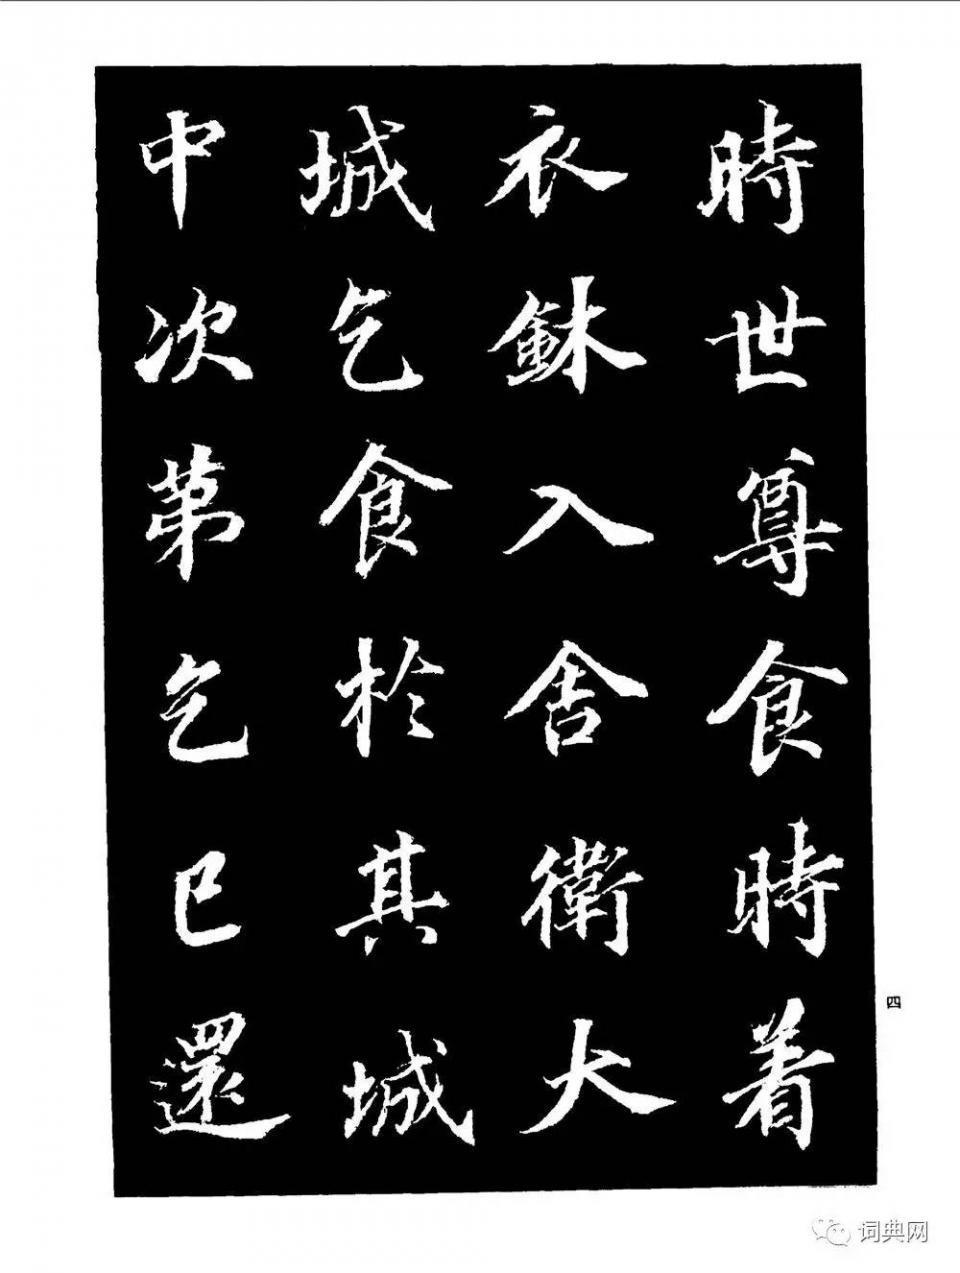 時世尊食時着
衣鉢入舍衛大
城乞食於其城
中次第乞已還
四
词典网